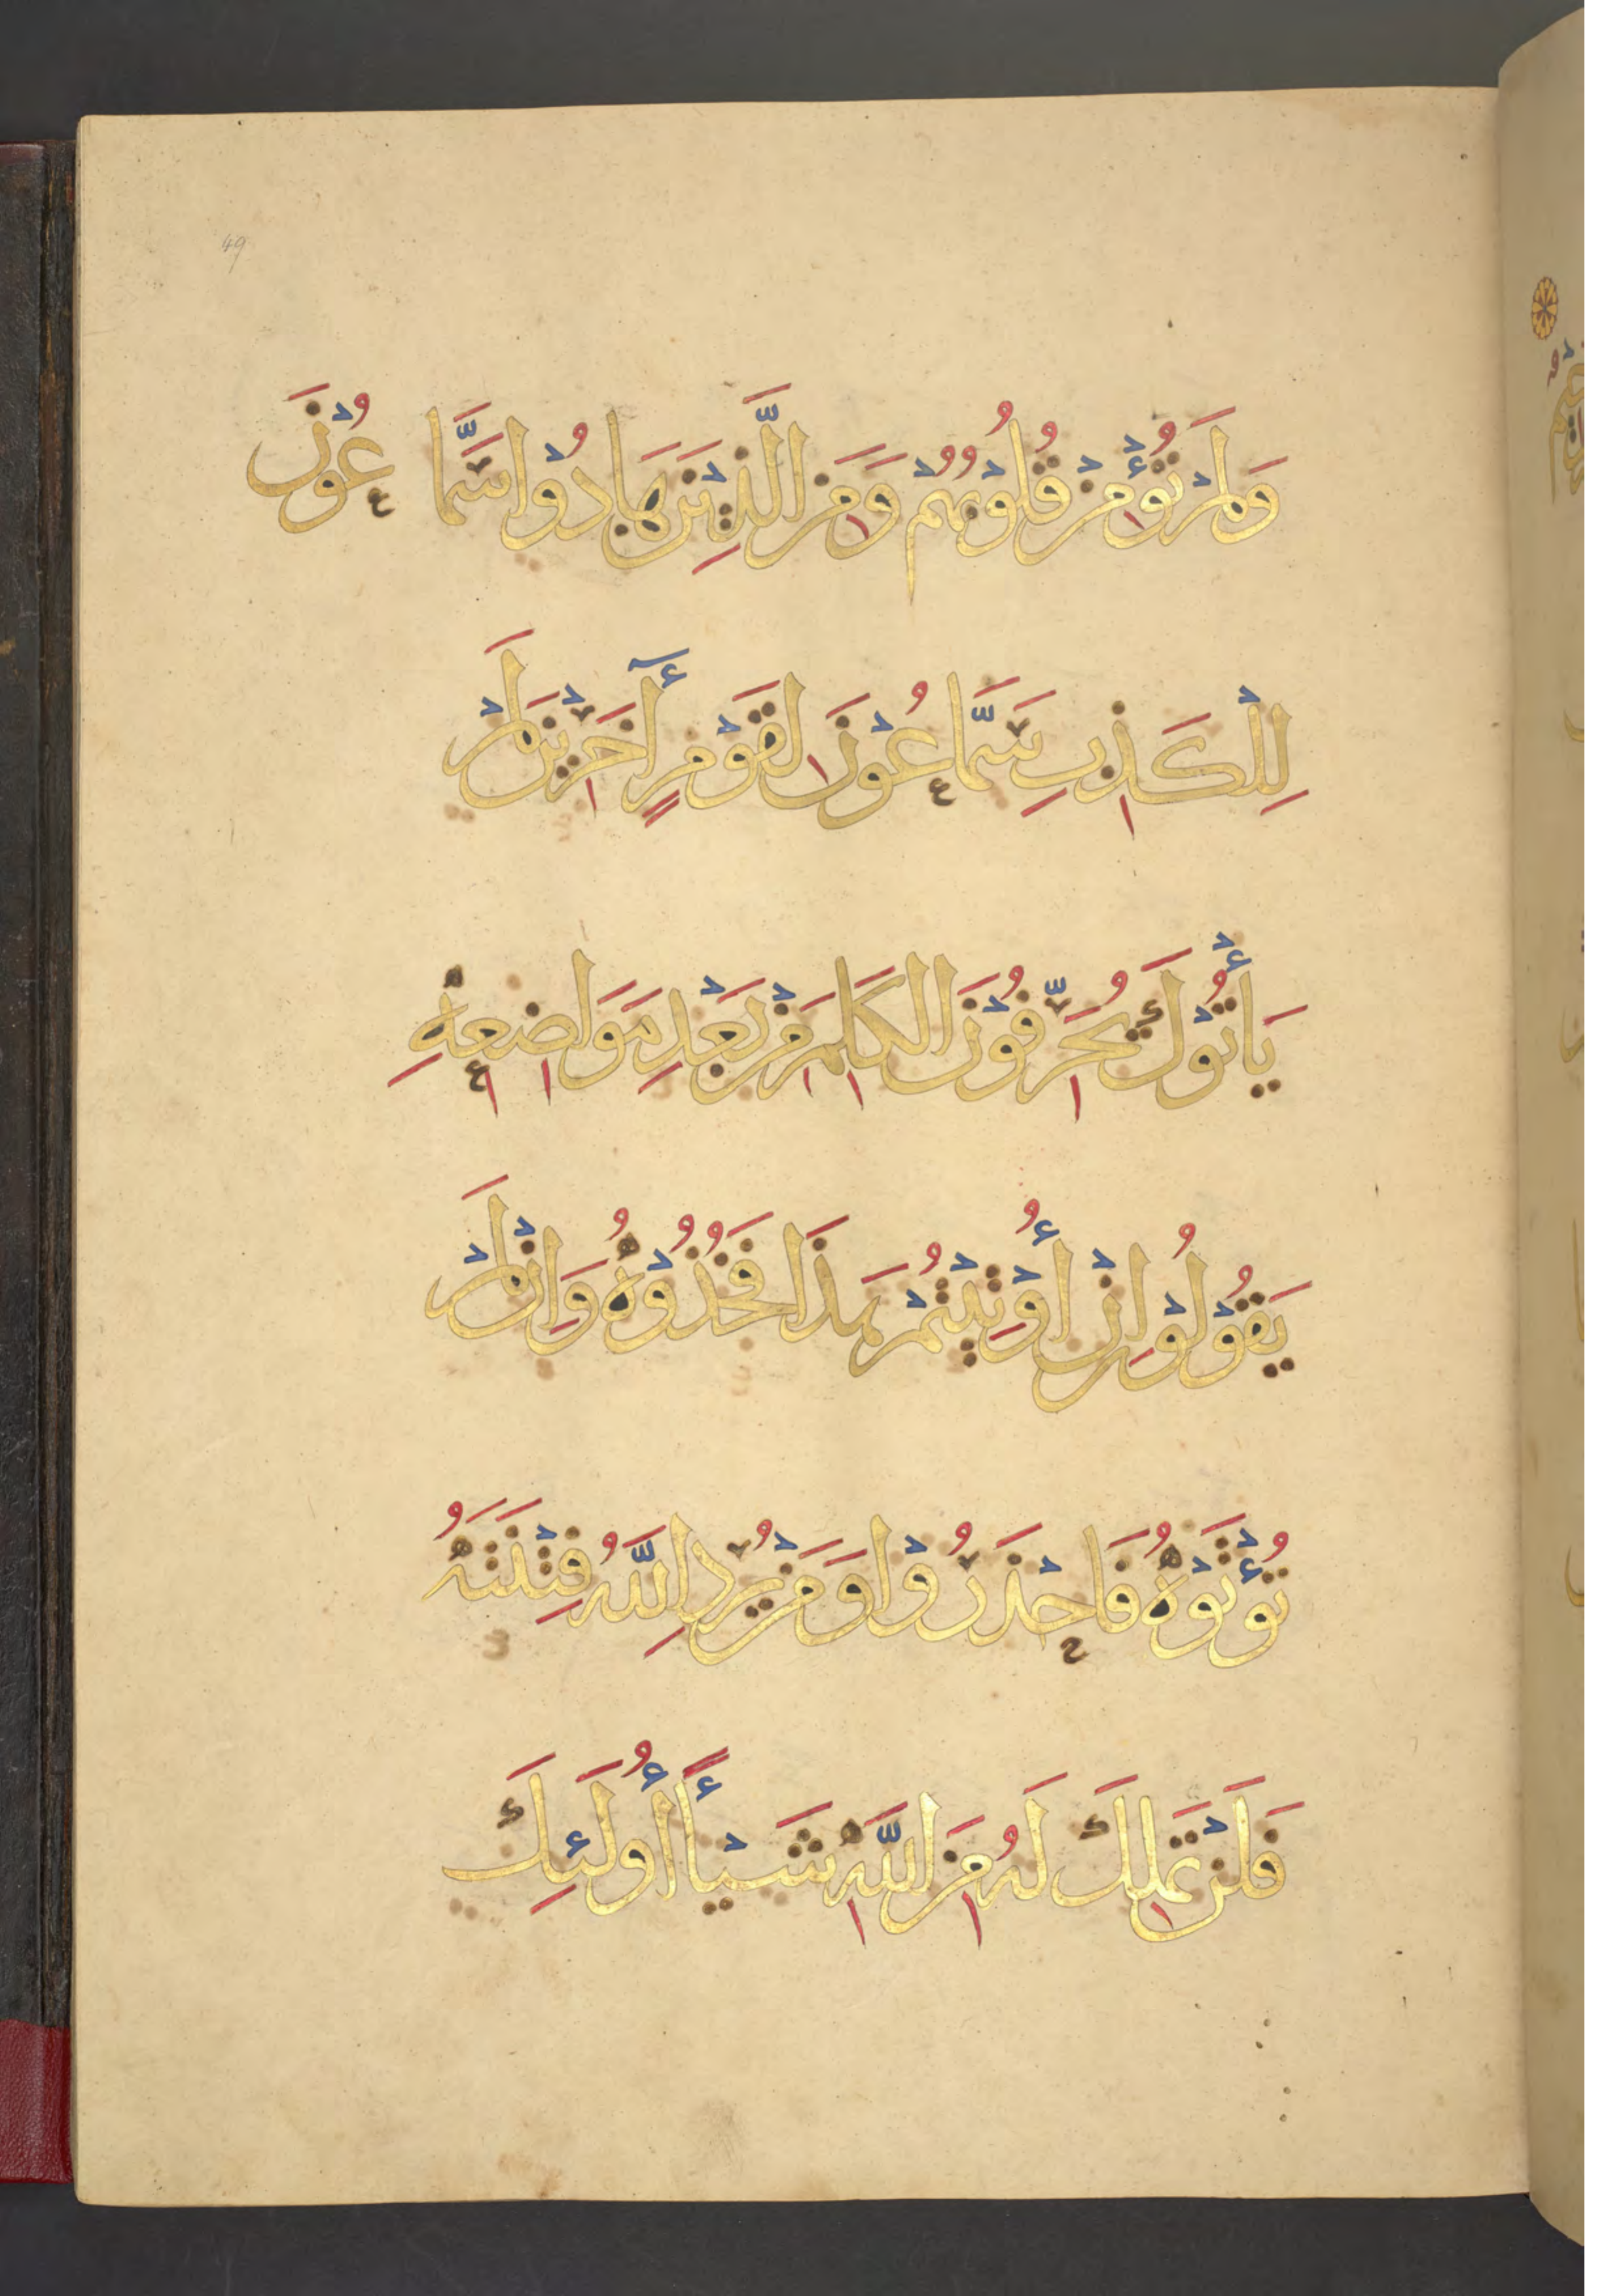 49
وَلَمْ تُؤْمِنْ قُلُوْبُهُمْ وَمِنَ الَّذِيْنَ هَادُوْا سَمَّاعُوْنَ
لِلْكَذِبِ سَمَّاعُوْنَ لِقَوْمٍ أٓخَرِيْنَ لَمْ
يَأْتُوْكَ يُحَرِّفُوْنَ الْكَلِمَ مِنْ بَعْدِ مَوَاضِعِهِ
يَقُوْلُوْنَ اِنْ أُوْتِيْتُمْ هَذَا فَخُذُوْهُ وَاِنْ لَمْ
تُؤْتَوْهُ فَاحْذَرُوْا وَمَنْ يُرِدِ اللَّهُ فِتْنَتَهُ
فَلَنْ تَمْلِكَ لَهُ مِنَ اللَّهِ شَيْأً أُولَئِكَ